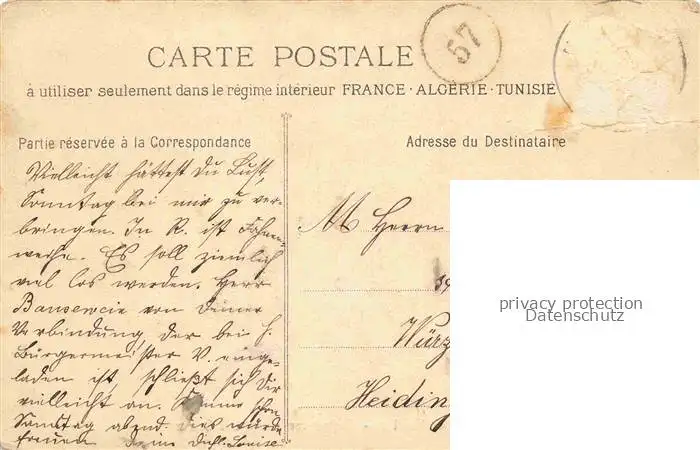 CARTE POSTALE
57
à utiliser seulement dans le régime intérieur FRANCE · ALGERIE · TUNISIE
Partie réservée à la Correspondance
Adresse du Destinataire
Vielleicht hättest Du Lust,
Sonntag bei mir zu ver-
bringen. In R. ist Fahnen-
weihe. Es soll ziemlich
viel los werden. Herr
von deiner
Verbindung, der bei H.
Bürgermeister V. einge-
laden ist, schließt sich Dir
vielleicht an. Komme schon
Samstag abend. Dies würde
freuen deine Dichl. Louise
M Herrn
Würz
Heiding
privacy protection
Datenschutz